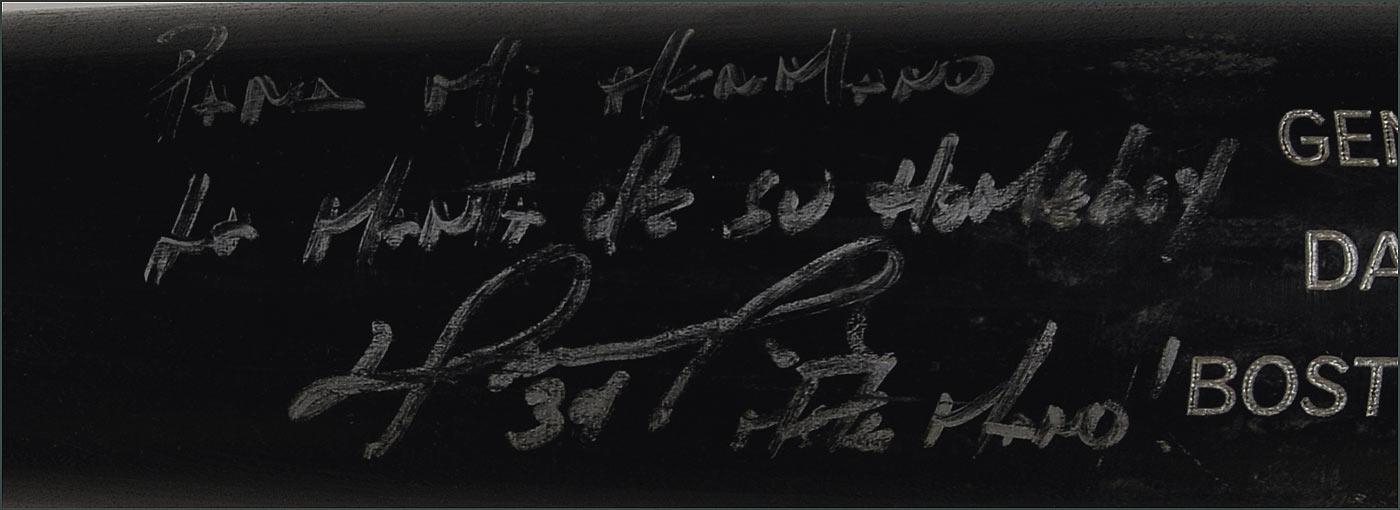 PARA Mi HERMANO
LA MANTA de SU HOMEBOY
34 MANO
GEN
DA
BOST